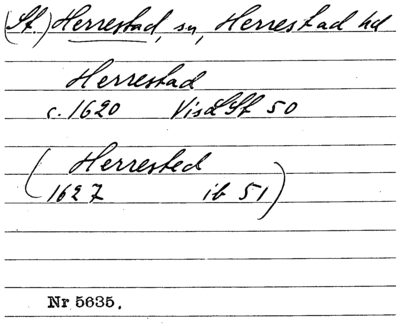 (St.) Herrestad, sn, Herrestad hd
Herrestad
c. 1620 VisdSt 50
(Herrested
1627 ib 51)
Nr 5635.